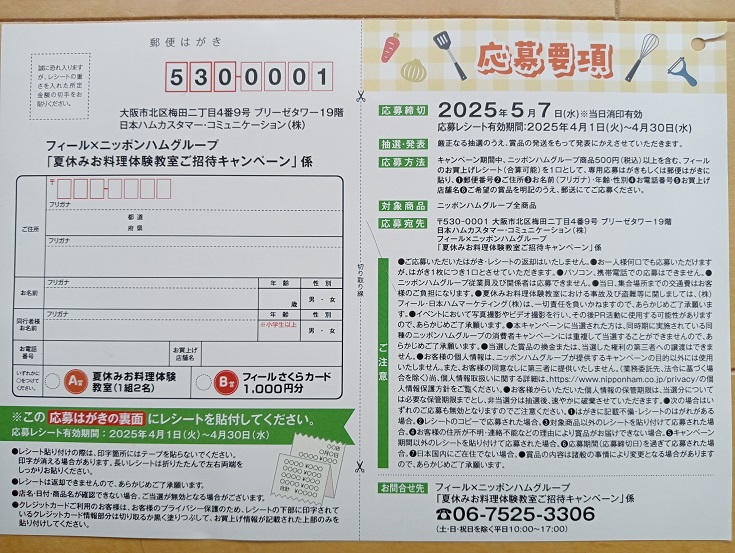 郵便はがき
誠に恐れ入りますが、レシートの重さを入れた所定金額の切手をお貼りください。
530-0001
大阪市北区梅田二丁目4番9号 ブリーゼタワー19階
日本ハムカスタマー・コミュニケーション(株)
フィール×ニッポンハムグループ
「夏休みお料理体験教室ご招待キャンペーン」係
〒
フリガナ
ご住所
都 道
府 県
フリガナ
お名前
フリガナ
年 齢
性 別
歳
男・女
同行者様
お名前
フリガナ
年 齢
性 別
※小学生以上
男・女
お電話
番号
お買上げ
店舗名
いずれかに○をつけてください。
A賞 夏休みお料理体験教室(1組2名)
B賞 フィールさくらカード1,000円分
※この 応募はがきの裏面 にレシートを貼付してください。
応募レシート有効期間:2025年4月1日(火)~4月30日(水)
●レシート貼付けの際は、印字箇所にはテープを貼らないでください。
印字が消える場合があります。長いレシートは折りたたんで左右両端を
しっかりお貼りください。
●レシートは返却できませんので、あらかじめご了承ください。
●店名・日付・商品名が確認できない場合、ご当選が無効となる場合がございます。
●クレジットカードご利用のお客様は、お客様のプライバシー保護のため、レシートの下部に印字され
ているクレジットカード情報部分は切り取るか黒く塗りつぶして、お買上げ情報が記載された上部のみを
貼り付けしてください。
切り取り線
応募要項
応募締切 2025年5月7日(水)※当日消印有効
応募レシート有効期間:2025年4月1日(火)~4月30日(水)
抽選・発表 厳正なる抽選のうえ、賞品の発送をもって発表にかえさせていただきます。
応募方法 キャンペーン期間中、ニッポンハムグループ商品500円(税込)以上を含む、フィール
のお買上げレシート(合算可能)を1口として、専用応募はがきもしくは郵便はがきに
貼り、❶郵便番号❷ご住所❸お名前(フリガナ)・年齢・性別❹お電話番号❺お買上げ
店舗名❻ご希望の賞品を明記のうえ、郵送にてご応募ください。
対象商品 ニッポンハムグループ全商品
応募宛先 〒530-0001 大阪市北区梅田二丁目4番9号 ブリーゼタワー19階
日本ハムカスタマー・コミュニケーション(株)
フィール×ニッポンハムグループ
「夏休みお料理体験教室ご招待キャンペーン」係
ご注意
●ご応募いただいたはがき・レシートの返却はいたしません。●お一人様何口でも応募いただけます
が、はがき1枚につき1口とさせていただきます。●パソコン、携帯電話での応募はできません。●
ニッポンハムグループ従業員及び関係者は応募できません。●当日、集合場所までの交通費はお客様
のご負担になります。●夏休みお料理体験教室における事故及び盗難等に関しましては、(株)
フィール・日本ハムマーケティング(株)は、一切責任を負いかねますので、あらかじめご了承願いま
す。●イベントにおいて写真撮影やビデオ撮影を行い、その後PR活動に使用する可能性があります
ので、あらかじめご了承願います。●本キャンペーンに当選された方は、同時期に実施されている同
種のニッポンハムグループの消費者キャンペーンには重複して当選することができませんので、あ
らかじめご了承願います。●当選した賞品の換金または、当選した権利の第三者への譲渡はできま
せん。●お客様の個人情報は、ニッポンハムグループが提供するキャンペーンの目的以外には使用
いたしません。また、お客様の同意なしに第三者に提供いたしません。(業務委託先、法令に基づく場
合を除く)尚、個人情報取扱いに関する詳細は、https://www.nipponham.co.jp/privacy/の個
人情報保護方針をご覧ください。●お客様からいただいた個人情報の保管期限は、当選分について
は必要な保管期限までとし、非当選分は抽選後、速やかに破棄させていただきます。●次の場合はい
ずれのご応募も無効となりますのでご注意ください。❶はがきに記載不備・レシートのはがれがある
場合。❷レシートのコピーで応募された場合。❸対象商品以外のレシートを貼付けて応募された場
合。❹お客様の住所が不明・連絡不能などの理由により賞品がお届けできない場合。❺キャンペーン
期間以外のレシートを貼付けて応募された場合。❻応募期間(応募締切日)を過ぎて応募された場
合。❼日本国内にご在住でない場合。●賞品の内容は諸般の事情により変更となる場合があります
ので、あらかじめご了承願います。
お問合せ先 フィール×ニッポンハムグループ
「夏休みお料理体験教室ご招待キャンペーン」係
☎06-7525-3306
(土・日・祝日を除く平日10:00~17:00)